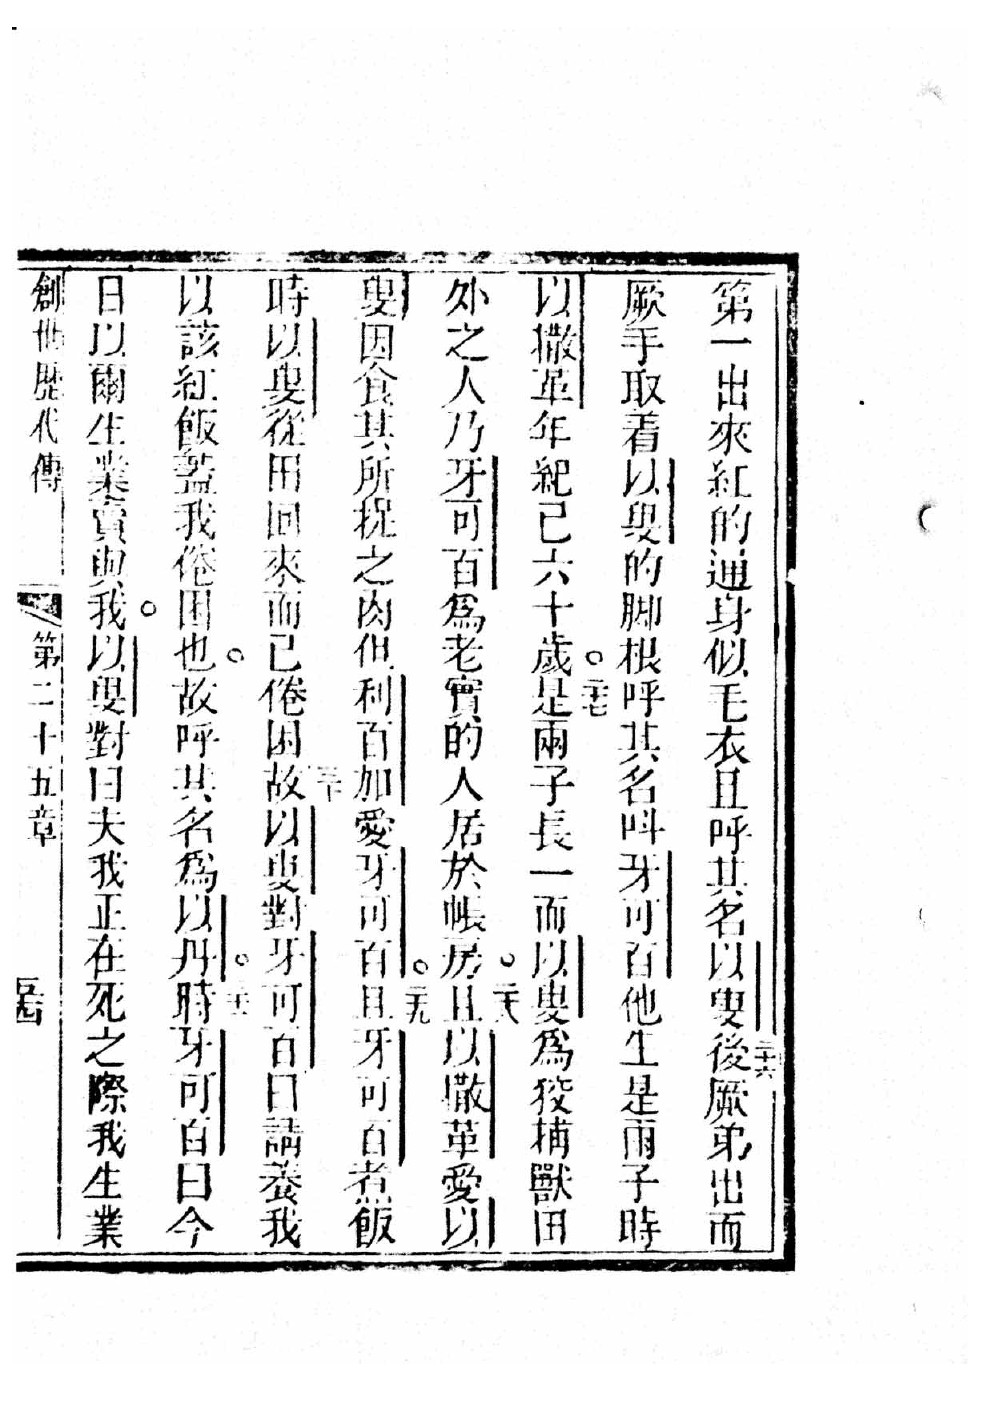 第一出來紅的通身似毛衣且呼其名以叟後厥弟出而
二十六
厥手取着以叟的脚根呼其名呌牙可百他生是兩子時
以撒革年紀已六十歲是兩子長一而以叟爲狡捕獸田
二十七
外之人乃牙可百爲老實的人居於帳房且以撒革愛以
二十八
叟因食其所捉之肉但利百加愛牙可百且牙可百煮飯
二十九
時以叟從田回來而已倦困故以叟對牙可百曰請養我
三十
以該紅飯蓋我倦困也故呼其名爲以丹時牙可百曰今
日以爾生業賣與我以叟對曰夫我正在死之際我生業
創世歷代傳 第二十五章